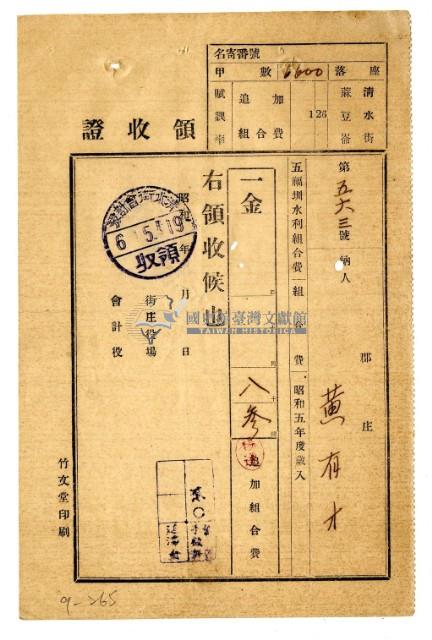 領收證
名寄番號
甲數 6600
座落 清水街 蔴豆崙
賦課率
追加組合費 126
第五六三號
納人
郡
庄
黄有才
五福圳水利組合費
組合費
昭和五年度歲入
一金
八參
追加組合費
右領收候也
昭和 年 月 日
清水街會計役
6.5.19
領收
街庄役場
會計役
竹文堂印刷
國史館臺灣文獻館
TAIWAN HISTORICA
9-265